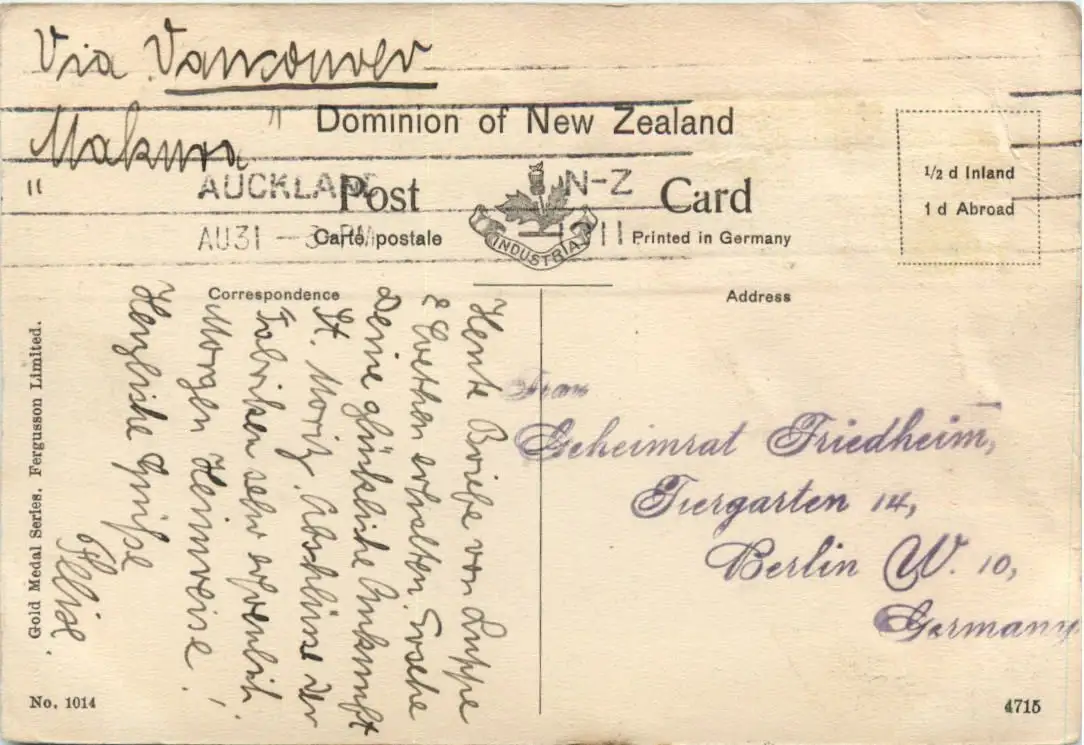 Via Vancouver
"Makura"
Dominion of New Zealand
AUCKLAND N-Z
Post Card
AU31 - 3 PM 1911
Carte postale
INDUSTRIA
Printed in Germany
1/2 d Inland
1 d Abroad
Correspondence
Address
Heute Briefe von Luppe
& Evchen erhalten. Ersehe
Deine glückliche Ankunft
St. Moritz. Abschlüsse der
Fabriken sehr erfreulich.
Morgen Heimreise!
Herzliche Grüsse
Frau
Geheimrat Friedheim,
Tiergarten 14,
Berlin W. 10,
Germany
Gold Medal Series. Fergusson Limited.
No. 1014
4715